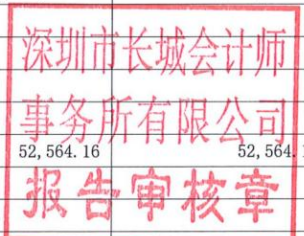 深圳市长城会计师
事务所有限公司
52,564.16 52,564.
报告审核章